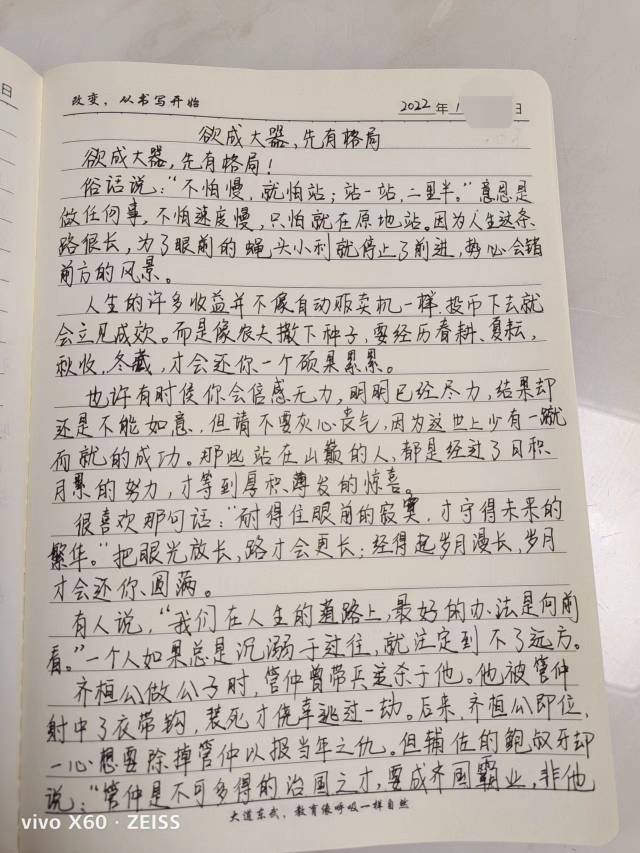 日
改变，从书写开始
2022年1 日
欲成大器，先有格局
欲成大器，先有格局！
俗话说："不怕慢，就怕站；站一站，二里半。"意思是
做任何事，不怕速度慢，只怕就在原地站。因为人生这条
路很长，为了眼前的蝇头小利就停止了前进，势必会错
前方的风景。
人生的许多收益并不像自动贩卖机一样，投币下去就
会立见成效。而是像农夫撒下种子，要经历春耕、夏耘，
秋收，冬藏，才会还你一个硕果累累。
也许有时候你会倍感无力，明明已经尽力，结果却
还是不能如意，但请不要灰心丧气，因为这世上少有一蹴
而就的成功。那些站在山巅的人，都是经过了日积
月累的努力，才等到厚积薄发的惊喜。
很喜欢那句话："耐得住眼前的寂寞，才守得未来的
繁华。"把眼光放长，路才会更长；经得起岁月漫长，岁月
才会还你、圆满。
有人说，"我们在人生的道路上，最好的办法是向前
看。"一个人如果总是沉溺于过往，就注定到不了远方。
齐桓公做公子时，管仲曾带兵逆杀于他。他被管仲
射中了衣带钩，装死才侥幸逃过一劫。后来，齐桓公即位，
一心想要除掉管仲以报当年之仇。但辅佐的鲍叔牙却
说："管仲是不可多得的治国之才，要成齐国霸业，非他
大道东武，教育像呼吸一样自然
vivo X60 · ZEISS